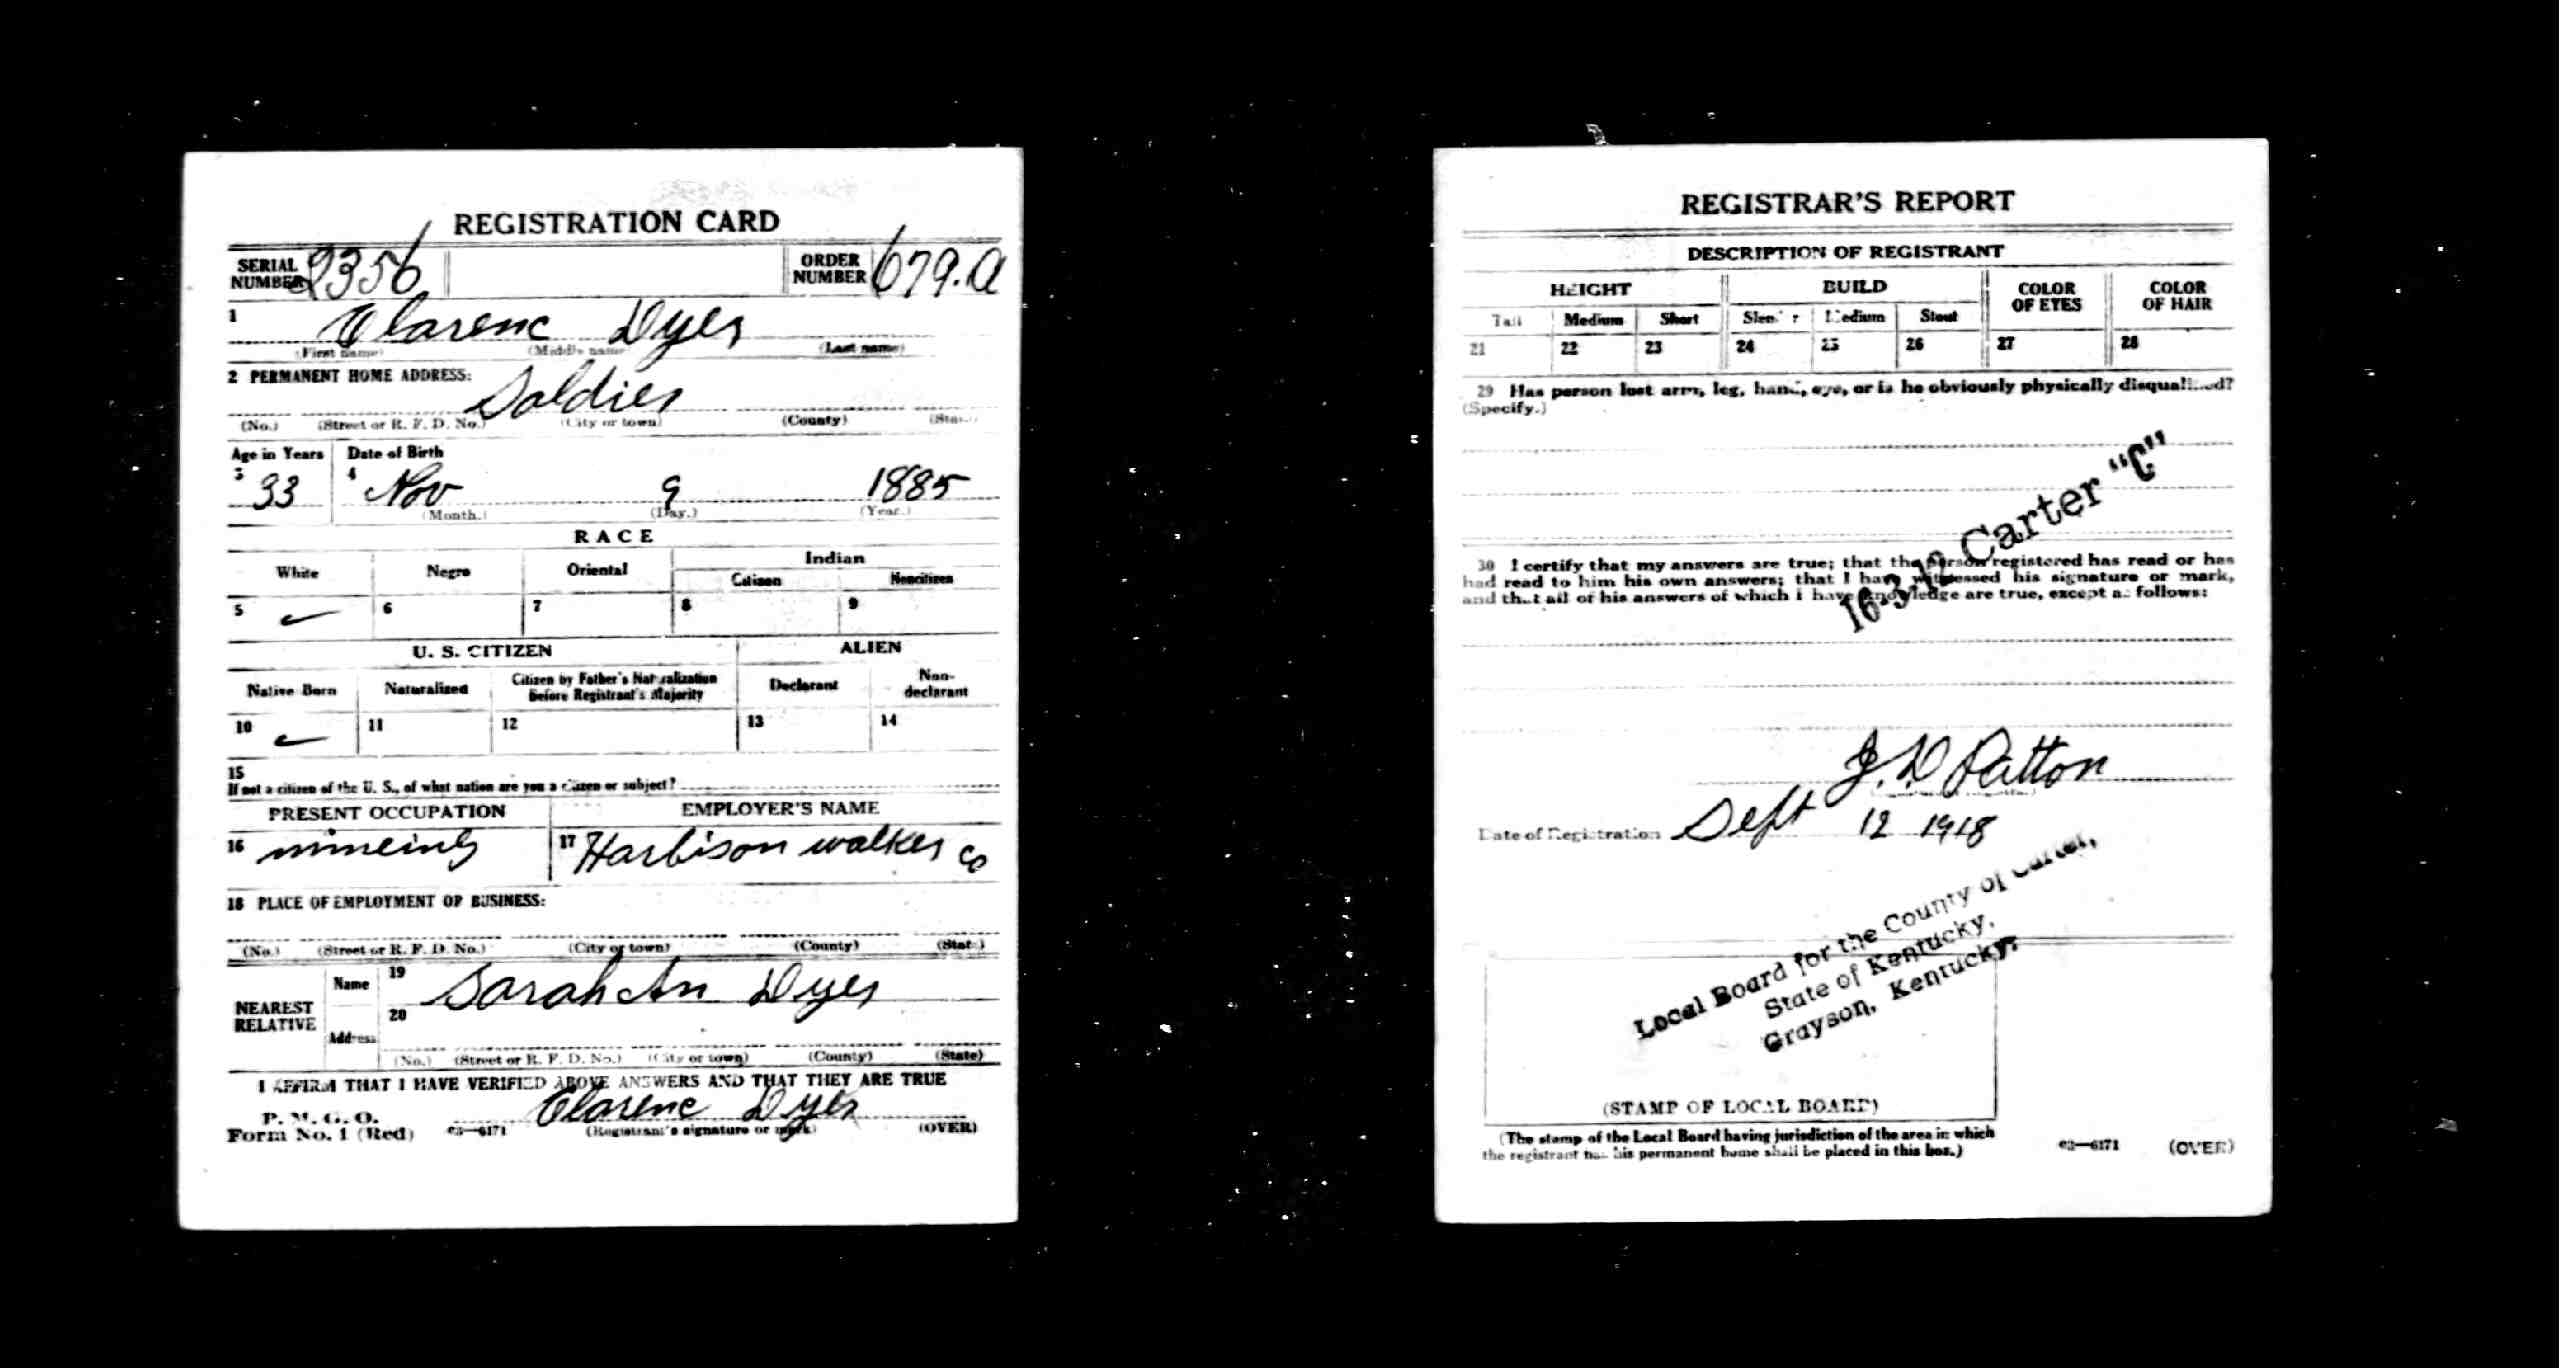 REGISTRATION CARD
SERIAL NUMBER 2356 ORDER NUMBER 679.A
1 Clarenc Dyer
(First name) (Middle name) (Last name)
2 PERMANENT HOME ADDRESS:
Soldier
(No.) (Street or R. F. D. No.) (City or town) (County) (State)
Age in Years Date of Birth
3 33 4 Nov 9 1885
(Month.) (Day.) (Year.)
RACE
White Negro Oriental Indian
Citizen Noncitizen
5 ✓ 6 7 8 9
U. S. CITIZEN ALIEN
Native Born Naturalized Citizen by Father's Naturalization before Registrant's Majority Declarant Non-declarant
10 ✓ 11 12 13 14
15
If not a citizen of the U. S., of what nation are you a citizen or subject?
PRESENT OCCUPATION EMPLOYER'S NAME
16 mineing 17 Harbison walker Co
18 PLACE OF EMPLOYMENT OR BUSINESS:
(No.) (Street or R. F. D. No.) (City or town) (County) (State)
NEAREST RELATIVE Name 19 Sarah An Dyer
Address 20
(No.) (Street or R. F. D. No.) (City or town) (County) (State)
I AFFIRM THAT I HAVE VERIFIED ABOVE ANSWERS AND THAT THEY ARE TRUE
P. M. G. O.
Form No. 1 (Red) 03—6171 Clarenc Dyer
(Registrant's signature or mark) (OVER)
REGISTRAR'S REPORT
DESCRIPTION OF REGISTRANT
HEIGHT BUILD COLOR OF EYES COLOR OF HAIR
Tall Medium Short Slender Medium Stout
21 22 23 24 25 26 27 28
29 Has person lost arm, leg, hand, eye, or is he obviously physically disqualified?
(Specify.)
16-3-12 Carter "C"
30 I certify that my answers are true; that the person registered has read or has
had read to him his own answers; that I have witnessed his signature or mark,
and that all of his answers of which I have knowledge are true, except as follows:
J. D Patton
Date of Registration Sept 12 1918
Local Board for the County of Carter,
State of Kentucky,
Grayson, Kentucky.
(STAMP OF LOCAL BOARD)
(The stamp of the Local Board having jurisdiction of the area in which
the registrant has his permanent home shall be placed in this box.)
03—6171 (OVER)